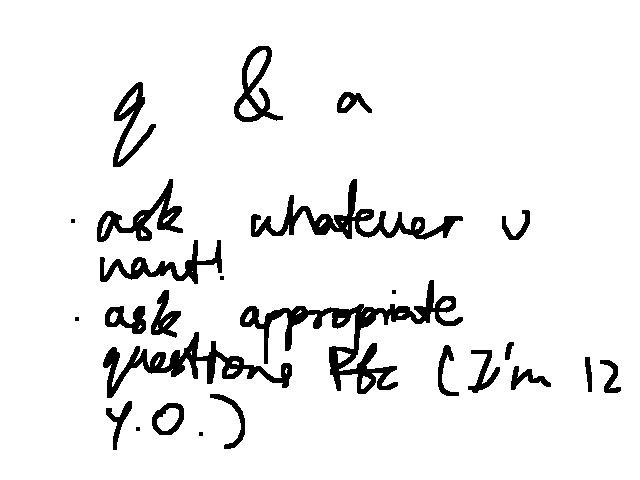 q & a
· ask whatever u
want!
· ask appropriate
questions Plz (I'm 12
y.o.)